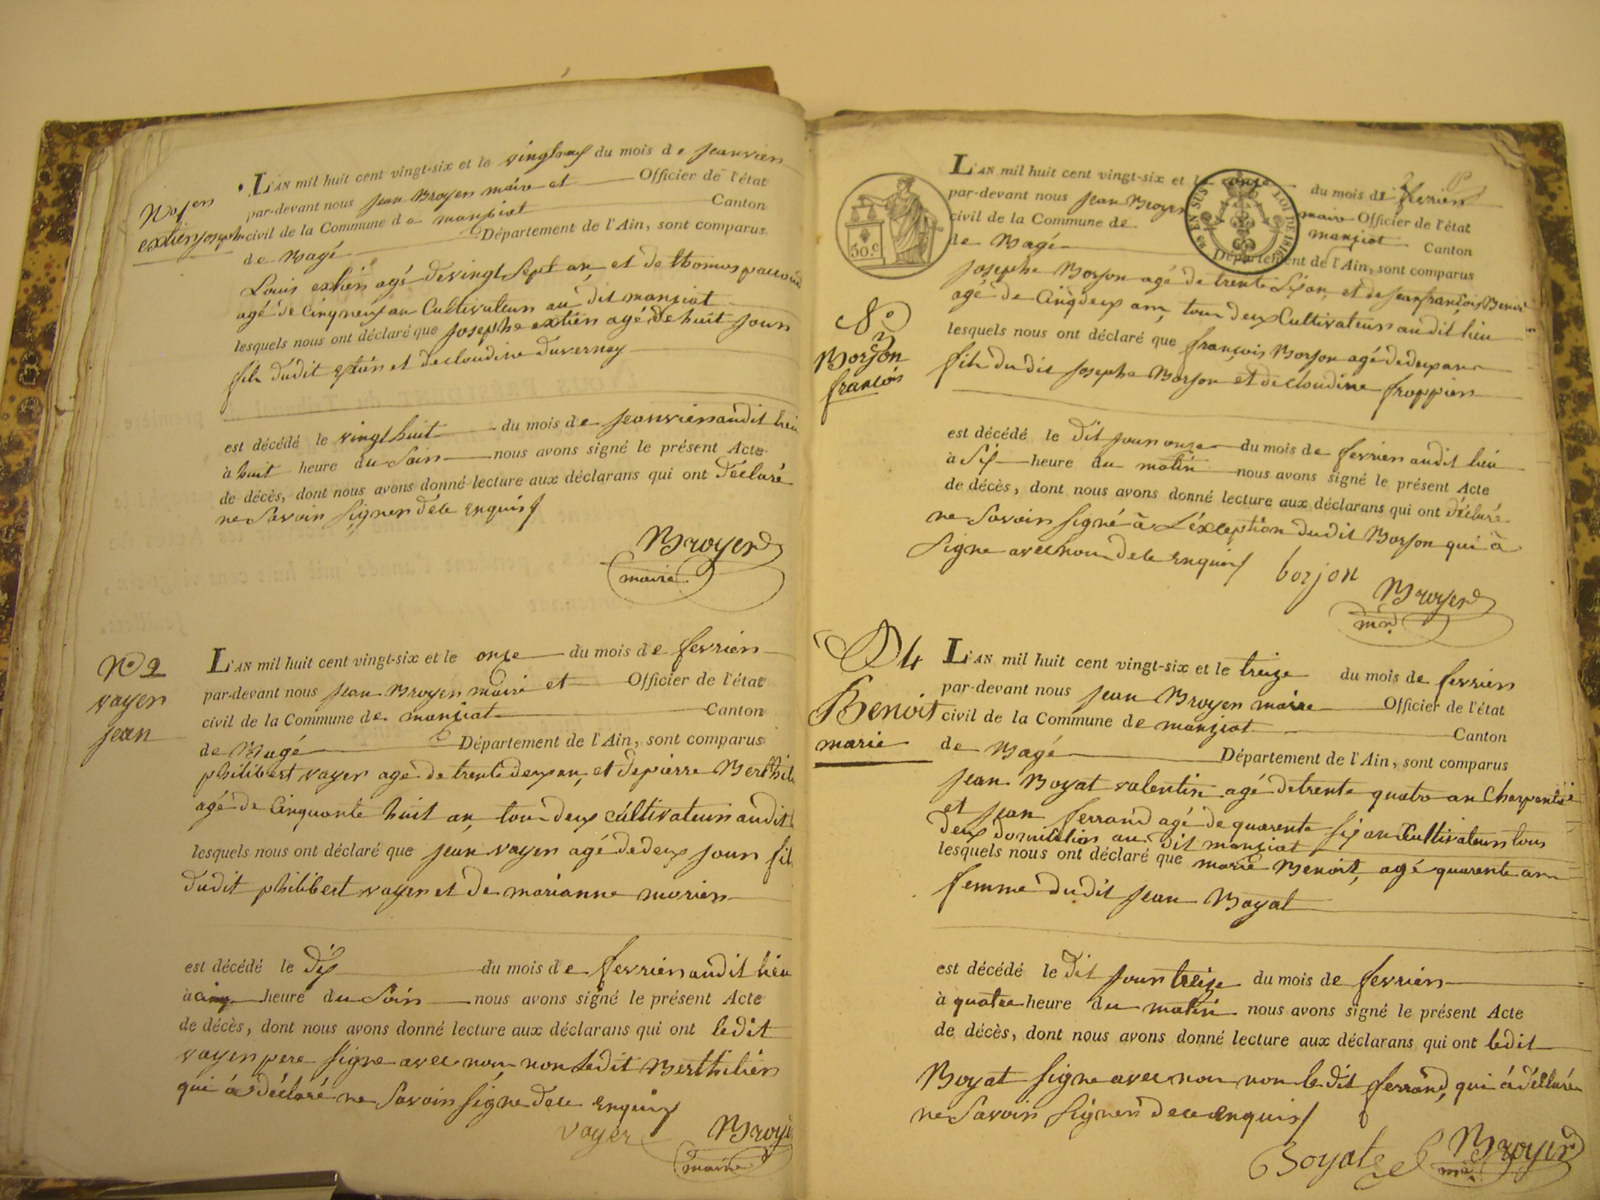 L'AN mil huit cent vingt-six et le vingtneuf du mois de jeanvien
par-devant nous jean Broyer maire et Officier de l'état
civil de la Commune de manziat Canton
de Bagé Département de l'Ain, sont comparus
extien joseph
Louis extien agé de vingt sept an et de thomas
agé de Cinq an Cultivateur au dit manziat
lesquels nous ont déclaré que josephe extien agé de huit jours
fils dudit extien et de cloudine duverney
est décédé le vingt huit du mois de jeanvien audit lieu
à huit heure du Soir nous avons signé le présent Acte
de décès, dont nous avons donné lecture aux déclarans qui ont déclaré
ne Savoir Signer de ce enquis
Broyer
maire
No 2
vayer
jean
L'AN mil huit cent vingt-six et le onze du mois de fevrien
par-devant nous jean Broyer maire et Officier de l'état
civil de la Commune de manziat Canton
de Bagé Département de l'Ain, sont comparus
philibert vayer agé de trente deux an, et de pierre Berthil
agé de Cinquante huit an, tous deux cultivateurs audit
lesquels nous ont déclaré que jean vayer agé de deux jours fil
dudit philibert vayer et de marianne morien
est décédé le dix du mois de fevrien audit lieu
à cinq heure du Soir nous avons signé le présent Acte
de décès, dont nous avons donné lecture aux déclarans qui ont ledit
vayer pere signe avec nous non ledit Berthilien
qui à déclaré ne Savoir signe de ce enquis
vayer Broye
maire
30 c.
EN SUS LOI DE
L'AN mil huit cent vingt-six et le onze du mois de fevrien
par-devant nous jean Broyer maire Officier de l'état
civil de la Commune de manziat Canton
de Bagé Département de l'Ain, sont comparus
josephe Borjon agé de trente Six an et de jean françois Benoit
agé de Cinq deux an, tous deux Cultivateurs audit lieu
No
Borjon
françois
lesquels nous ont déclaré que françois Borjon agé de deux ans
fils dudit josephe Borjon et de cloudine froppier
est décédé le dit jour onze du mois de fevrien audit lieu
à Six heure du matin nous avons signé le présent Acte
de décès, dont nous avons donné lecture aux déclarans qui ont déclaré
ne Savoir signé à L'éxception dudit Borjon qui à
Signe avec nous de ce enquis
borjon Broyer
mre
4
Benoit
marie
L'AN mil huit cent vingt-six et le treize du mois de fevrien
par-devant nous jean Broyer maire Officier de l'état
civil de la Commune de manziat Canton
de Bagé Département de l'Ain, sont comparus
jean Boyat valentin agé de trente quatre an Charpentié
et jean ferrand agé de quarente six an Cultivateur tous
deux domicilies au dit manziat
lesquels nous ont déclaré que marie Benoit, agé quarente an
femme dudit jean Boyat
est décédé le dit jour treize du mois de fevrien
à quatre heure du matin nous avons signé le présent Acte
de décès, dont nous avons donné lecture aux déclarans qui ont ledit
Boyat signe avec nous non le dit ferrand, qui à déclaré
ne Savoir Signer de ce enquis
Boyat Broyer
mre